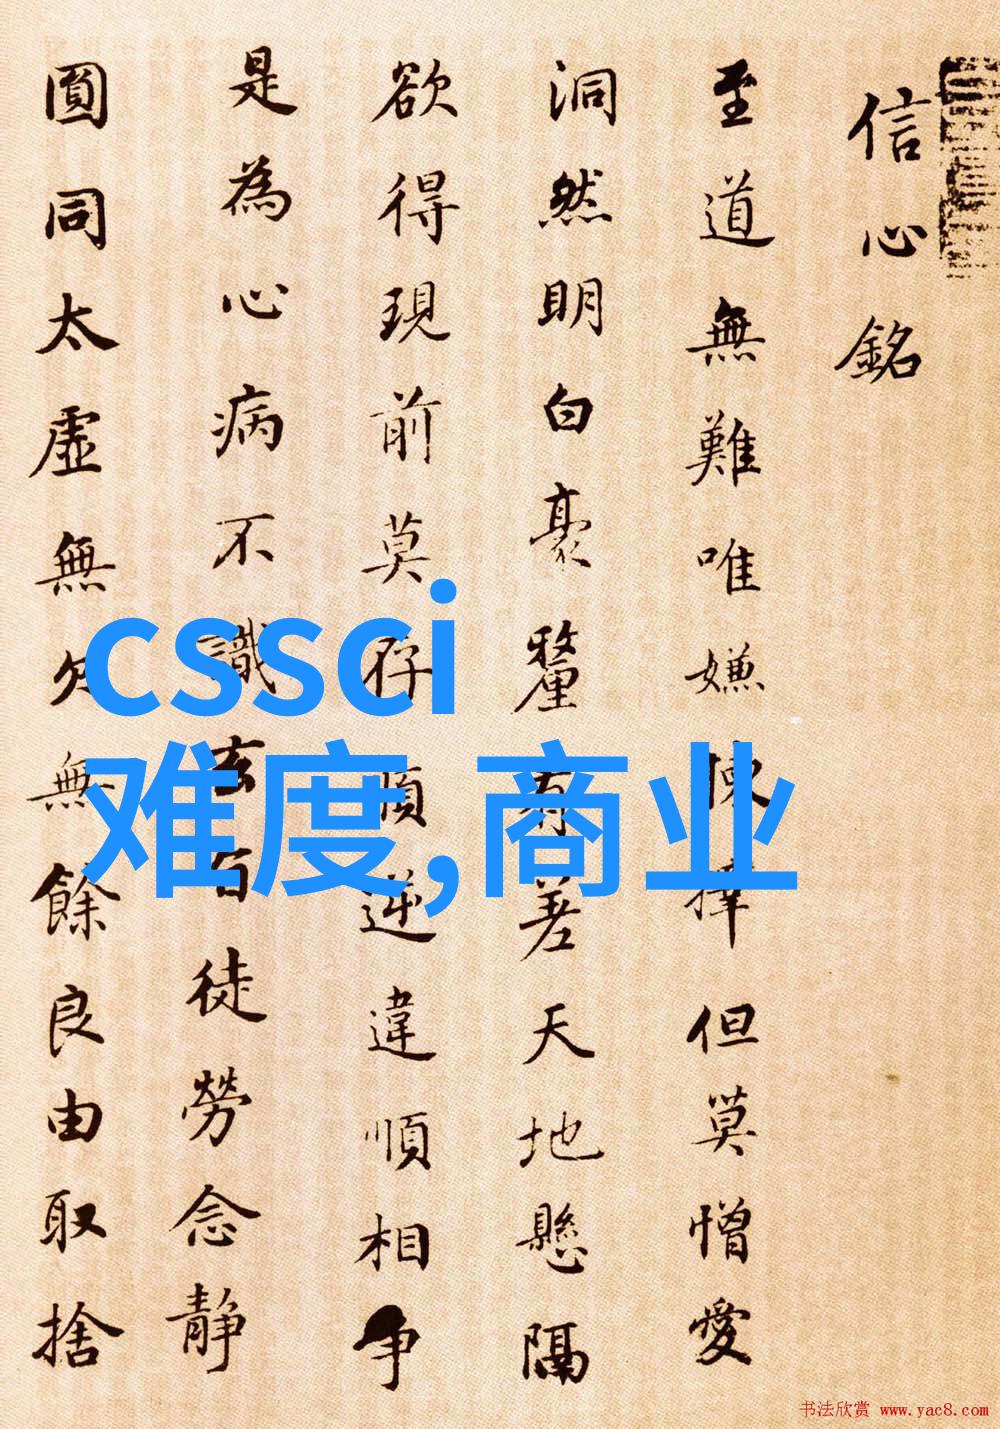 信心銘
至道無難唯嫌揀擇但莫憎愛
洞然明白豪釐有差天地懸隔
欲得現前莫存順逆違順相爭
是為心病不識玄旨徒勞念靜
圓同太虛無欠無餘良由取捨
cssci
难度,商业
书法欣赏 www.yac8.com